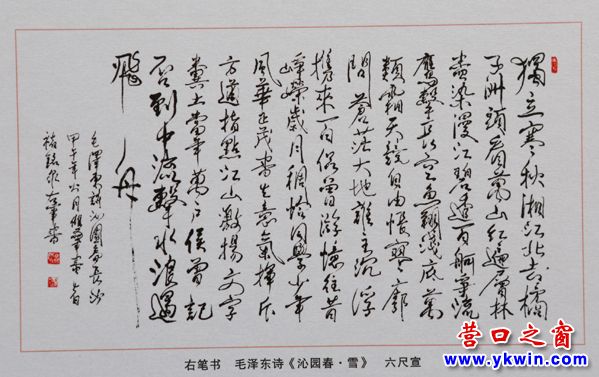 獨立寒秋湘江北去橘
子洲頭看萬山紅遍層林
盡染漫江碧透百舸爭流
鷹擊長空魚翔淺底萬
類霜天競自由悵寥廓
問蒼茫大地誰主沉浮
攜來百侶曾游憶往昔
崢嶸歲月稠恰同學少年
風華正茂書生意氣揮斥
方遒指點江山激揚文字
糞土當年萬戶侯曾記
否到中流擊水浪遏
飛舟
毛澤東詩沁園春長沙
甲午年
右笔书 毛泽东诗《沁园春·雪》 六尺宣
营口之窗
www.ykwin.com